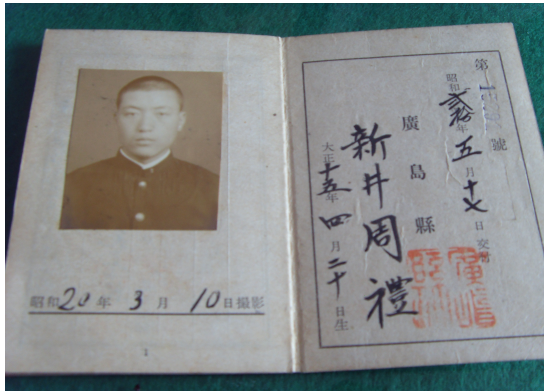 昭和20年3月10日撮影
1
第 號
昭和弐拾年五月十七日交付
廣島縣
新井周禮
大正十五年四月二十日生